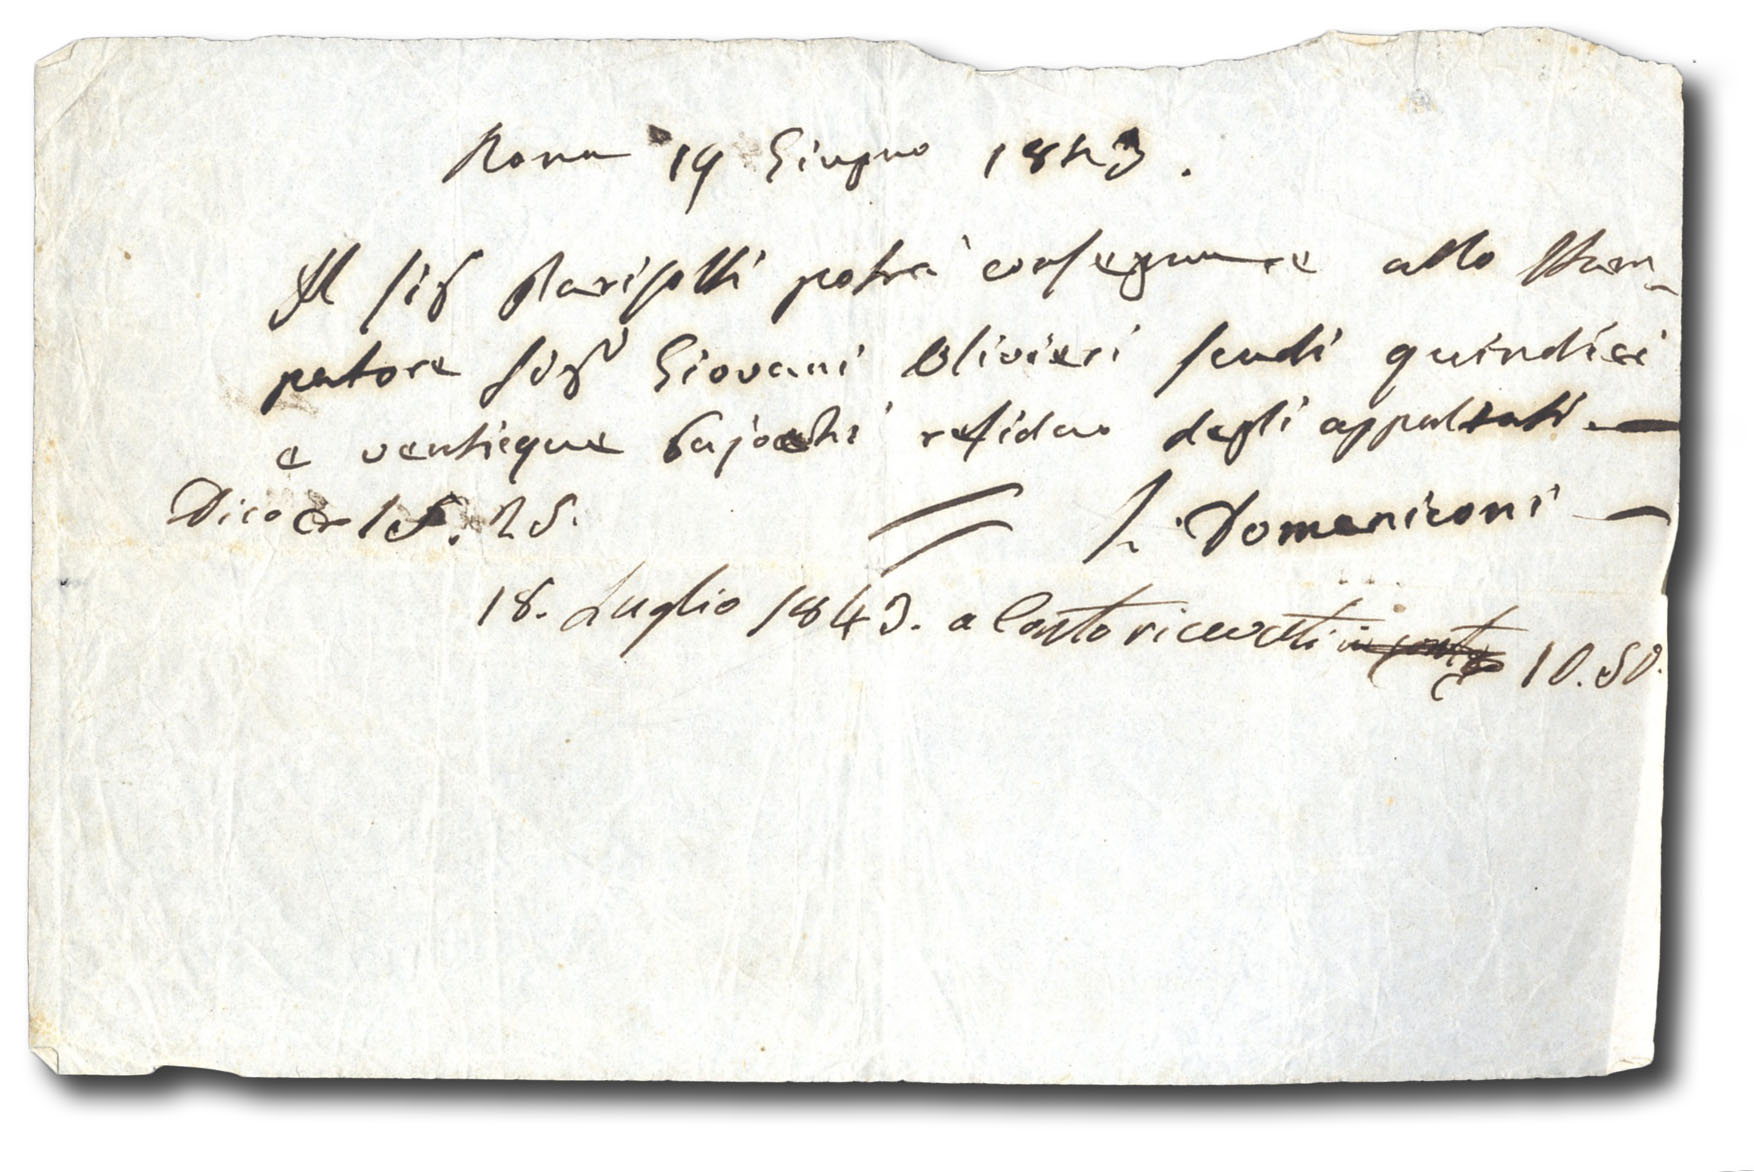 Roma 19 Giugno 1843.
Il Sig Parisotti potrà consegnare allo Stam-
patore Sigr Giovani Olivieri scudi quindici
e venticque bajocchi residuo degli appaltati —
Dico 15. 25. L. Domeniconi —
18. Luglio 1843. a Conto ricevuti in conto 10.50.